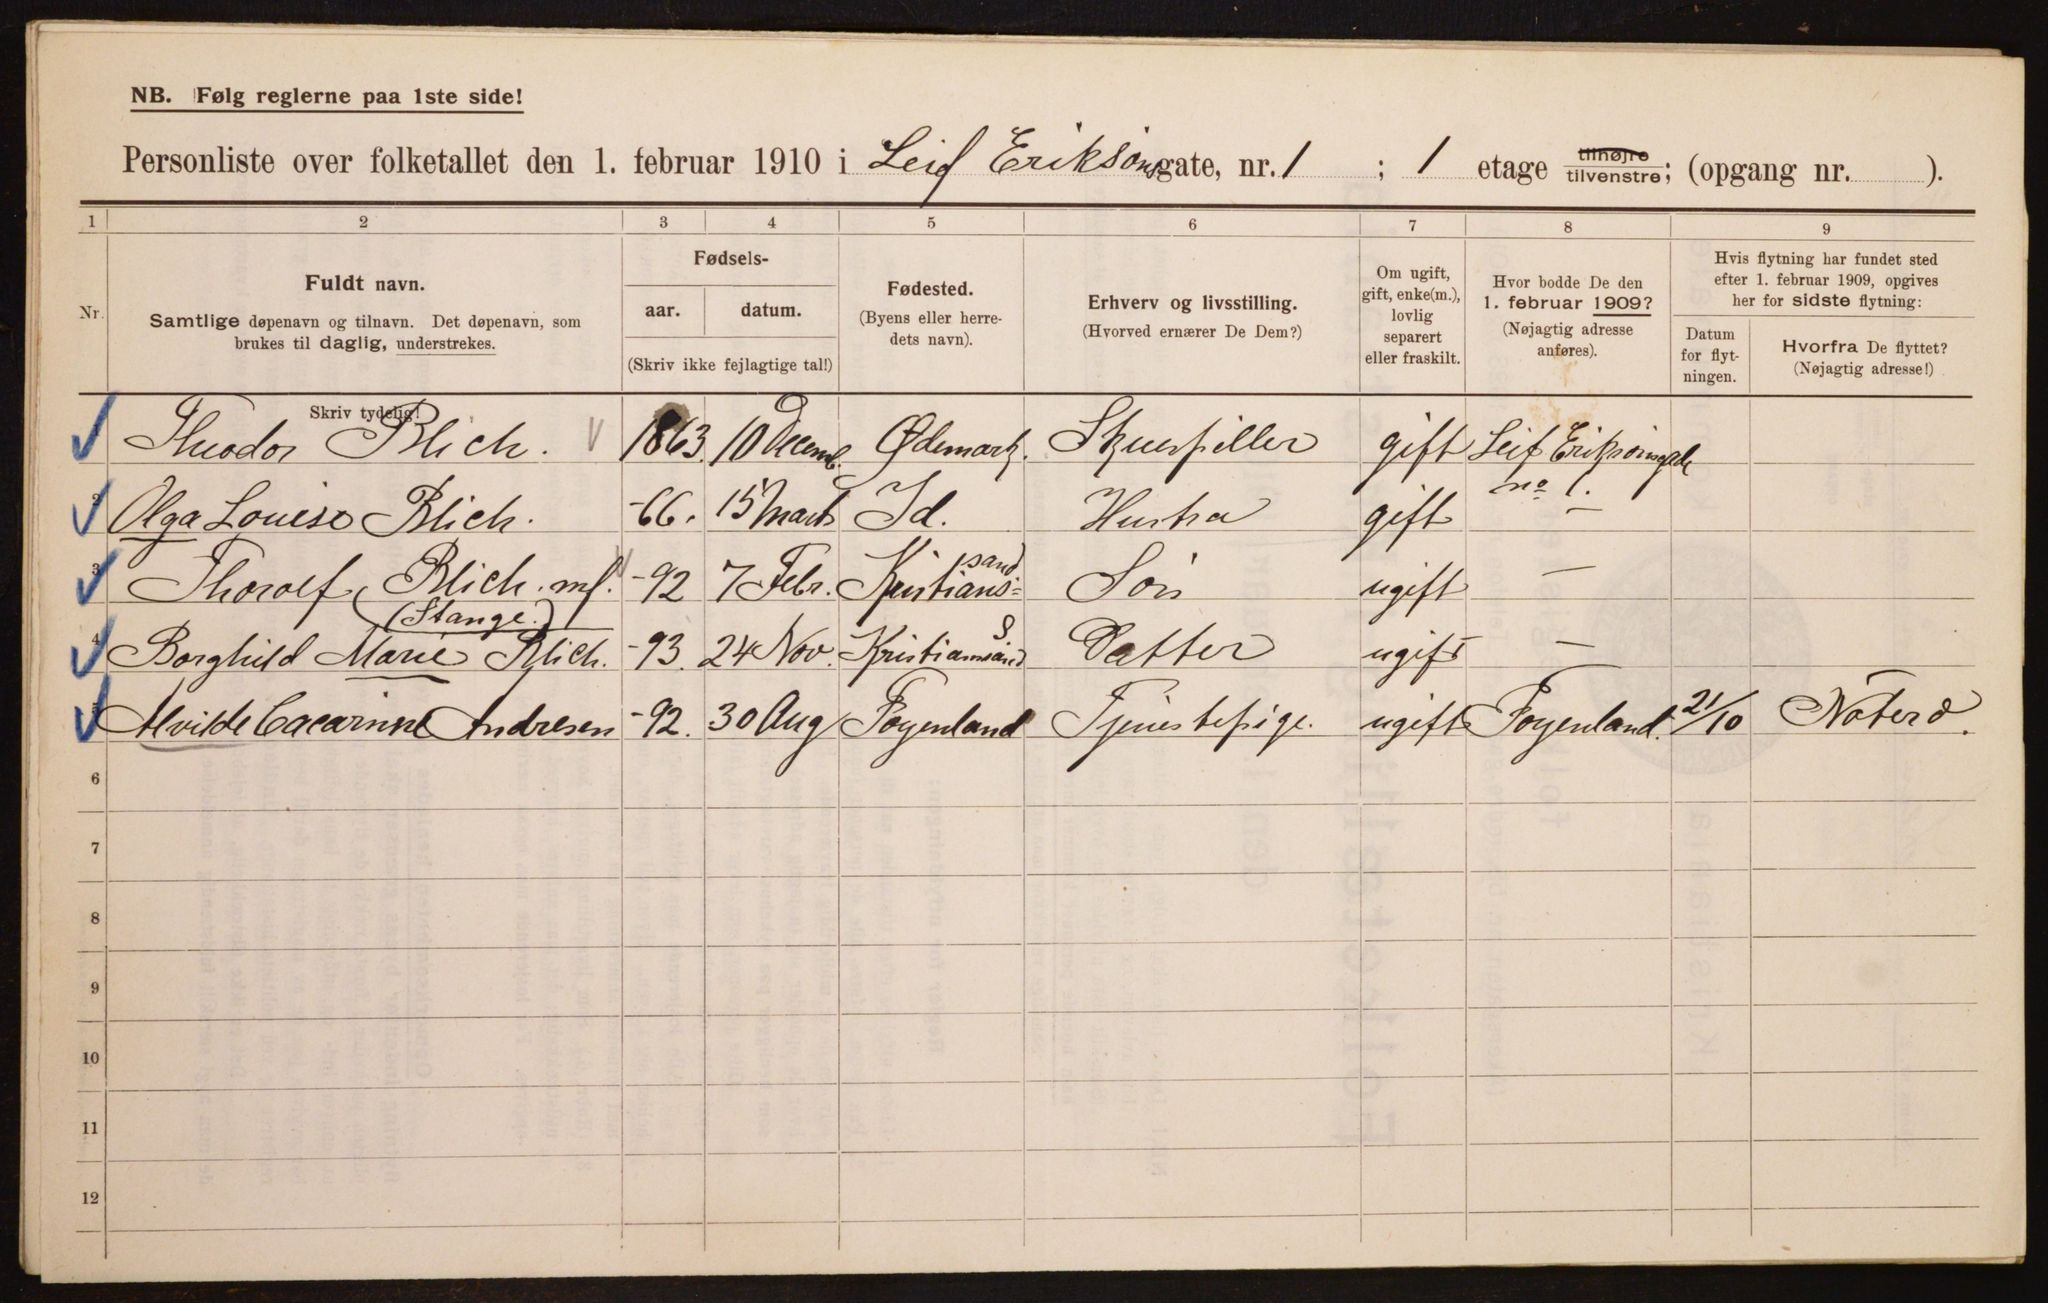 NB. Følg reglerne paa 1ste side!
Personliste over folketallet den 1. februar 1910 i Leif Eriksøns gate, nr. 1 ; 1 etage tilhøjre tilvenstre; (opgang nr. ).
1 2 3 4 5 6 7 8 9
Nr.
Fuldt navn.
Samtlige døpenavn og tilnavn. Det døpenavn, som
brukes til daglig, understrekes.
Fødsels-
aar. datum.
(Skriv ikke fejlagtige tal!)
Fødested.
(Byens eller herre-
dets navn).
Erhverv og livsstilling.
(Hvorved ernærer De Dem?)
Om ugift,
gift, enke(m.),
lovlig
separert
eller fraskilt.
Hvor bodde De den
1. februar 1909?
(Nøjagtig adresse
anføres).
Hvis flytning har fundet sted
efter 1. februar 1909, opgives
her for sidste flytning:
Datum
for flyt-
ningen.
Hvorfra De flyttet?
(Nøjagtig adresse!)
Skriv tydelig!
Theodor Blich. 1863. 10 Decemb. Ødemark. Skuespiller gift Leif Eriksønsgade no 1.
2 Olga Louise Blich. -66. 15 Marts Id. Hustra gift –
3 Thorolf Blich. mf. (Stange.) -92 7 Febr. Kristians=sand Søn ugift –
4 Borghild Marie Blich. -93. 24 Nov. Kristianssand Datter ugift –
5 Alvilde Cacarinne Andresen -92. 30 Aug Føyenland Tjenestepige. ugift Føyenland. 21/10 Nøterø.
6
7
8
9
10
11
12